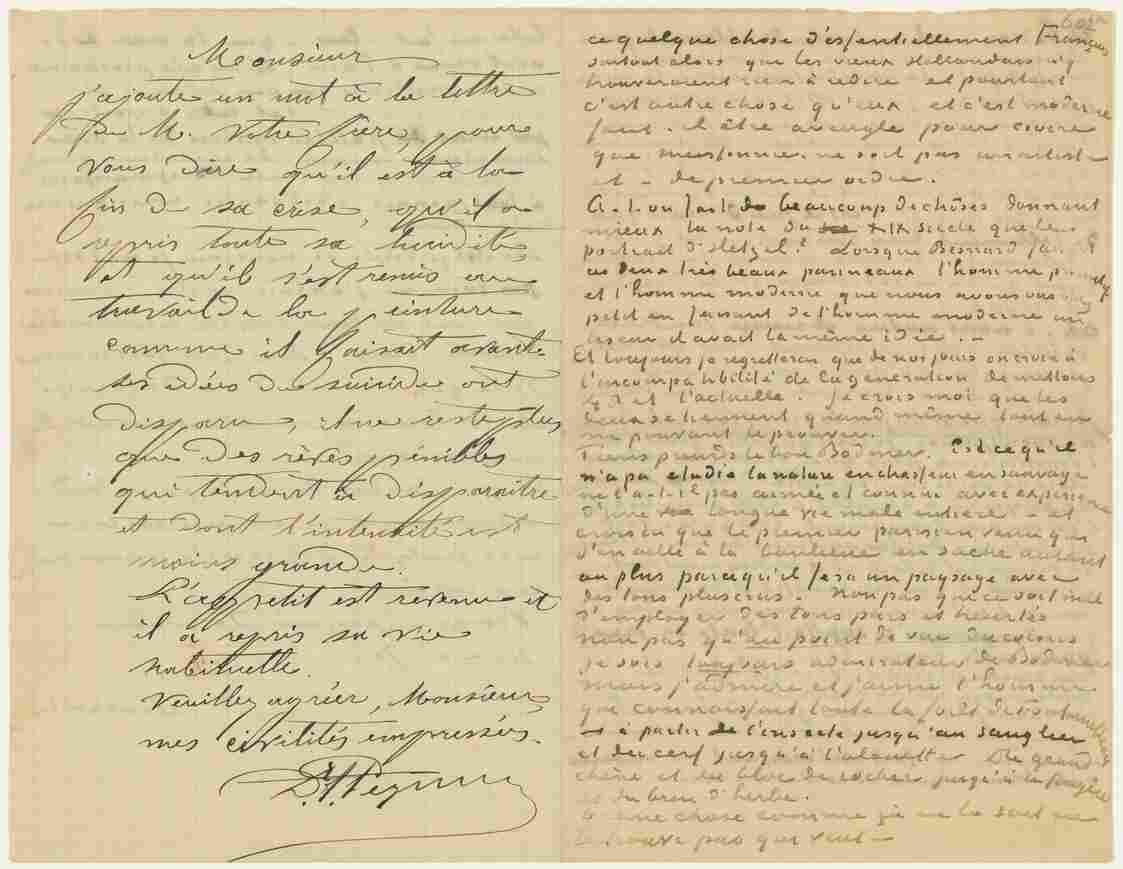 Monsieur
j'ajoute un mot à la lettre
de M. votre frère, pour
vous dire qu'il est à la
fin de sa crise, qu'il a
repris toute sa lucidité,
et qu'il s'est remis au
travail de la peinture
comme il faisait avant.
ses idées de suicide ont
disparu, il ne reste plus
que des rêves pénibles
qui tendent à disparaître
et dont l'intensité est
moins grande.
L'appetit est revenu et
il a repris sa vie
habituelle.
Veuillez agréer, Monsieur,
mes civilités empressées.
Dr. Th Peyron
602
ce quelque chose d'essentiellement Français
surtout alors que les vieux Hollandais n'y
trouveraient rien à redire et pourtant
c'est autre chose qu'eux et c'est moderne
faut-il être aveugle pour croire
que meissonnier ne soit pas un artiste
et – de premier ordre.
A-t-on fait beaucoup de choses donnant
mieux la note du XIX siecle que le
portrait d'Hetzel? Lorsque Besnard fai
ces deux très beaux panneaux l'homme primitif
et l'homme moderne que nous avons vus
petit en faisant de l'homme moderne un
liseur il avait la même idée. –
Et toujours je regretterai que de nos jours on croie à
l'incompatibilité de la génération de mettons
48 et l'actuelle. Je crois moi que les
deux se tiennent quand même tout en
ne pouvant le prouver.
prends le bon Bodmer. Est ce qu'il
n'a pa etudié la nature en chasseur en sauvage
ne l'a-t-il pas aimée et connue avec expérience
d'une longue vie mâle entière – et
crois tu que le premier parisien venu qui
s'en aille à la banlieue en sache autant
ou plus parcequ'il fera un paysage avec
des tons plus crus. Non pas que ce soit mal
d'employer des tons purs et heurtés
non pas qu'au point de vue du coloris
je sois toujours admirateur de Bodmer
mais j'admire et j'aime l'homme
qui connaissait toute la forêt de Fontainebleau
à partir de l'insecte jusqu'au sanglier
et du cerf jusqu'à l'alouette. Du grand
chêne et du bloc de rocher jusqu'à la fougère
et du brin d'herbe.
Or une chose comme ça ne la sent ou
la trouve pas qui veut –